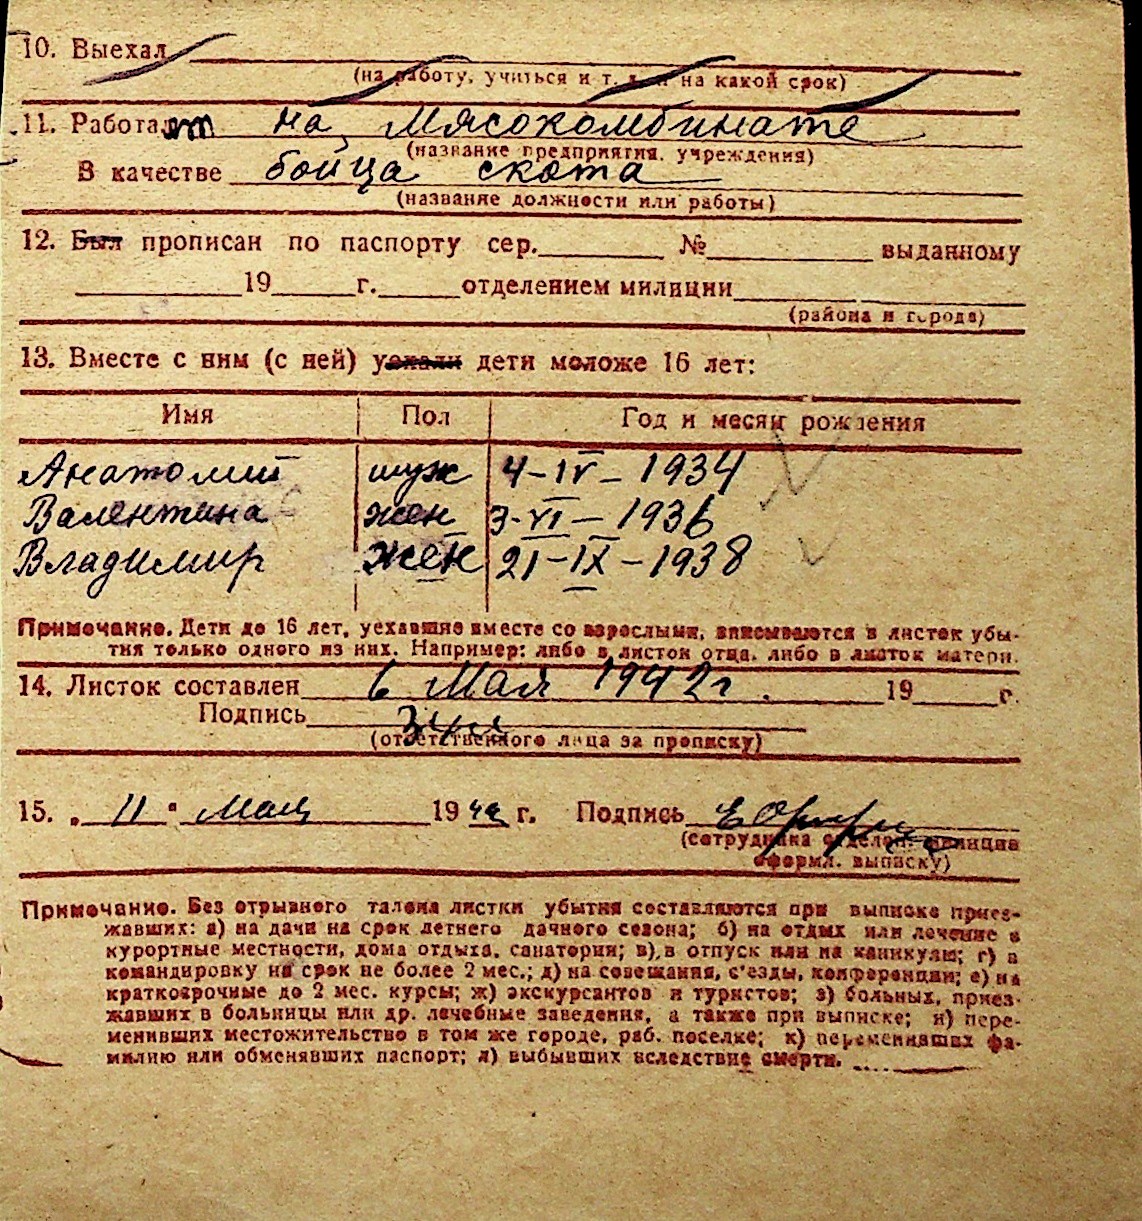 10. Выехал
(на работу, учиться и т. д. и на какой срок)
11. Работает на Мясокомбинате
(название предприятия, учреждения)
В качестве бойца скота
(название должности или работы)
12. Был прописан по паспорту сер. № выданному
19 г. отделением милиции
(района и города)
13. Вместе с ним (с ней) уехали дети моложе 16 лет:
Имя Пол Год и месяц рождения
Анатолий муж 4-IV-1934
Валентина жен 3-VI-1936
Владимир жен 21-IX-1938
Примечание. Дети до 16 лет, уехавшие вместе со взрослыми, вписываются в листок убы-
тия только одного из них. Например: либо в листок отца, либо в листок матери.
14. Листок составлен 6 Мая 1942г. 19 г.
Подпись
(ответственного лица за прописку)
15. „11" Мая 1942 г. Подпись
(сотрудника отделен. милиции
оформл. выписку)
Примечание. Без отрывного талона листки убытия составляются при выписке приез-
жавших: а) на дачи на срок летнего дачного сезона; б) на отдых или лечение в
курортные местности, дома отдыха, санатории; в) в отпуск или на каникулы; г) в
командировку на срок не более 2 мес.; д) на совещания, с'езды, конференции; е) на
краткосрочные до 2 мес. курсы; ж) экскурсантов и туристов; з) больных, приез-
жавших в больницы или др. лечебные заведения, а также при выписке; и) пере-
менивших местожительство в том же городе, раб. поселке; к) переменивших фа-
милию или обменявших паспорт; л) выбывших вследствие смерти.